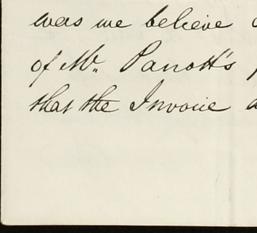 was we believe
of Mr. Parrott's
that the Invoice